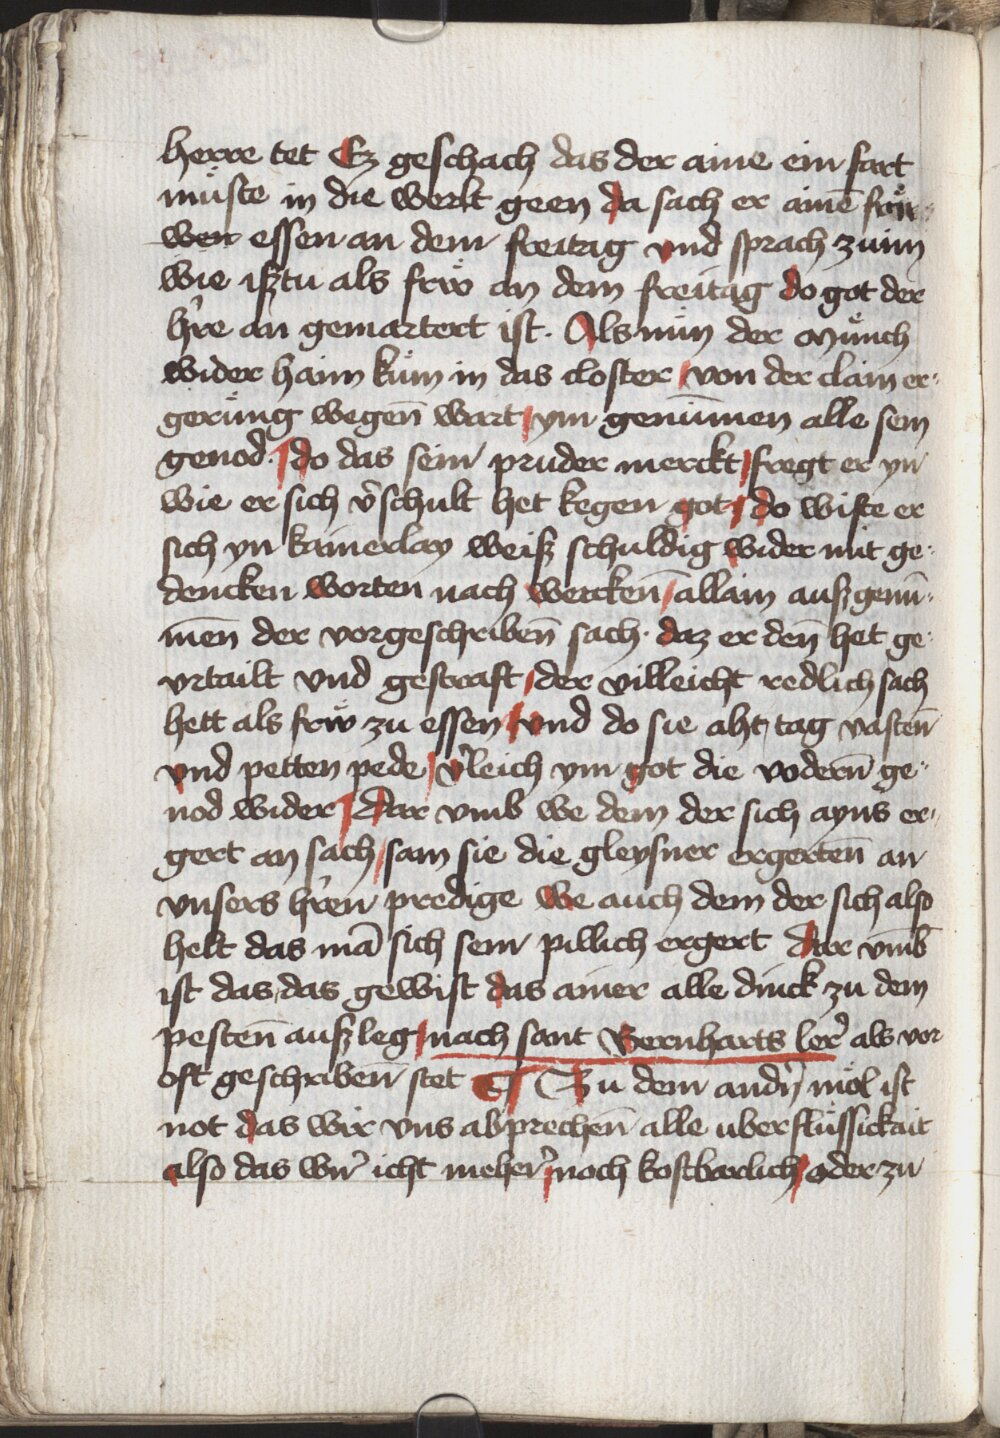 herre tet Ez geschach das der aine ein fart
müste in die werlt geen da sach er ainē frau
wen essen an dem freitag vnd sprach zuim
wie iß tu als frwͦ an dem freitag do got der
hr̄e an gemartert ist. Als nün der Münch
wider haim küm in das closter von der clain er-
gerüng wegen̄ wart ym genūmen alle sein
genod. do das sein pruder merckt fregt er yn
wie er sich v̄schult het kegen got do wiste er
sich yn kainerlay weiß schuldig wider mit ge-
dencken worten nach wercken̄ allain auß genū-
men̄ der vorgeschriben̄ sach. daz er den̄ het ge-
vrtailt vnd gestraft der villeicht redlich sach
hett als frẅ zu essen vnd do sie aht tag vasten̄
vnd petten pede v̄leich ym got die vodern̄ ge-
nod wider Dar vmb we dem der sich ayns er-
gert an sach sam sie die gleysner ergerten̄ an
vnsers hr̄en predige we auch dem der sich also
helt das mā sich sein pillich ergert Dar vmb
ist das das gewist das ainer alle dinck zu dem
pesten̄ auß leg nach sant Bernharts ler̄ als vor
oft geschriben̄ stet ¶ Zu dem andn̄ möl ist
not das wir vns abprechen̄ alle uberflüssickait
also das wir̄ icht meher̄ noch kostbarlich oder zu